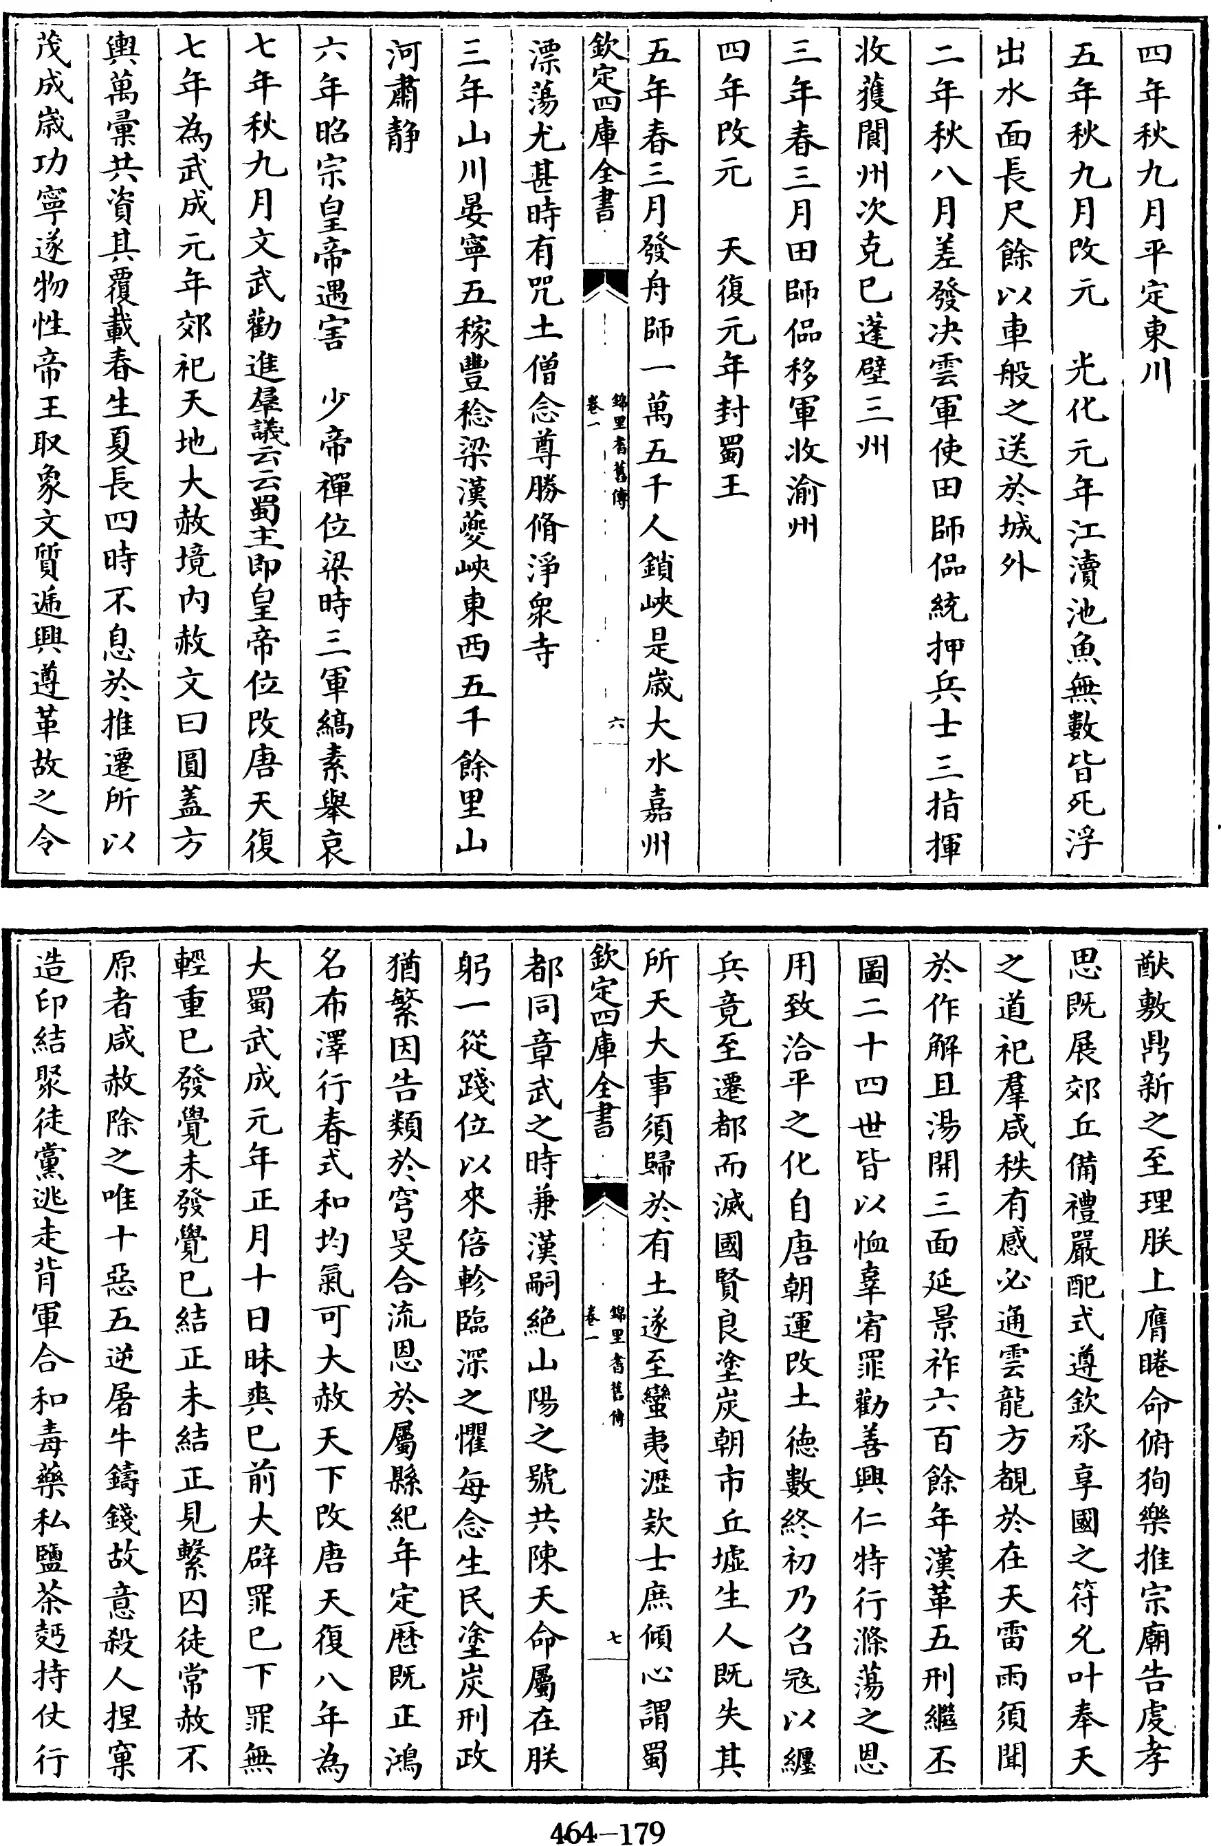 四年秋九月平定東川
五年秋九月改元　光化元年江瀆池魚無數皆死浮
出水面長尺餘以車般之送於城外
二年秋八月差發決雲軍使田師侃統押兵士三指揮
收獲閬州次克巳蓬壁三州
三年春三月田師侃移軍收渝州
四年改元　天復元年封蜀王
五年春三月發舟師一萬五千人鎖峽是歲大水嘉州
欽定四庫全書
錦里耆舊傳
卷一
六
漂蕩尤甚時有咒土僧念尊勝脩淨衆寺
三年山川晏寧五稼豐稔梁漢夔峽東西五千餘里山
河肅静
六年昭宗皇帝遇害　少帝禪位梁時三軍縞素舉哀
七年秋九月文武勸進羣議云云蜀主即皇帝位改唐天復
七年為武成元年郊祀天地大赦境内赦文曰圓蓋方
輿萬彙共資其覆載春生夏長四時不息於推遷所以
茂成歲功寧遂物性帝王取象文質遞興遵革故之令
猷敷鼎新之至理朕上膺睠命俯狥樂推宗廟告虔孝
思既展郊丘備禮嚴配式遵欽承享國之符允叶奉天
之道祀羣咸秩有感必通雲龍方覩於在天雷雨須聞
於作解且湯開三面延景祚六百餘年漢革五刑繼丕
圖二十四世皆以恤辜宥罪勸善興仁特行滌蕩之恩
用致洽平之化自唐朝運改土德數終初乃召寇以纏
兵竟至遷都而滅國賢良塗炭朝市丘墟生人既失其
所天大事須歸於有土遂至蠻夷瀝欵士庶傾心謂蜀
欽定四庫全書
錦里耆舊傳
卷一
七
都同章武之時兼漢嗣絶山陽之號共陳天命屬在朕
躬一從踐位以來倍軫臨深之懼每念生民塗炭刑政
猶繁因告類於穹旻合流恩於屬縣紀年定歷既正鴻
名布澤行春式和均氣可大赦天下改唐天復八年為
大蜀武成元年正月十日昧爽已前大辟罪已下罪無
輕重已發覺未發覺已結正未結正見繫囚徒常赦不
原者咸赦除之唯十惡五逆屠牛鑄錢故意殺人捏窠
造印結聚徒黨逃走背軍合和毒藥私鹽茶麪持仗行
464-179